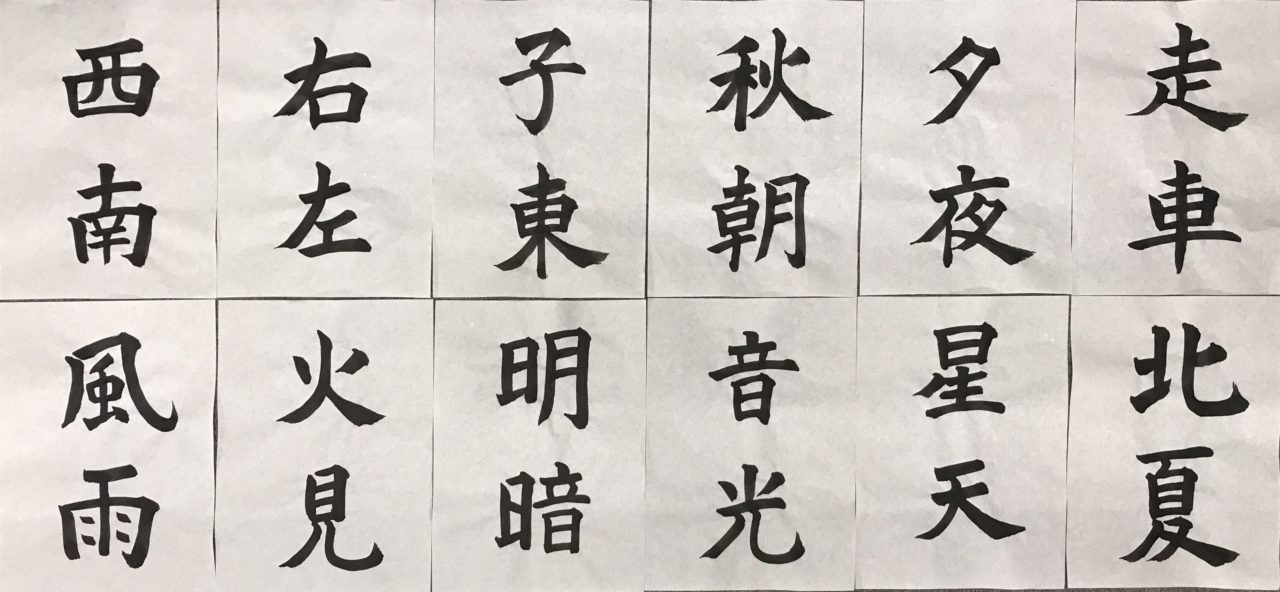 走車
夕夜
秋朝
子東
右左
西南
北夏
星天
音光
明暗
火見
風雨